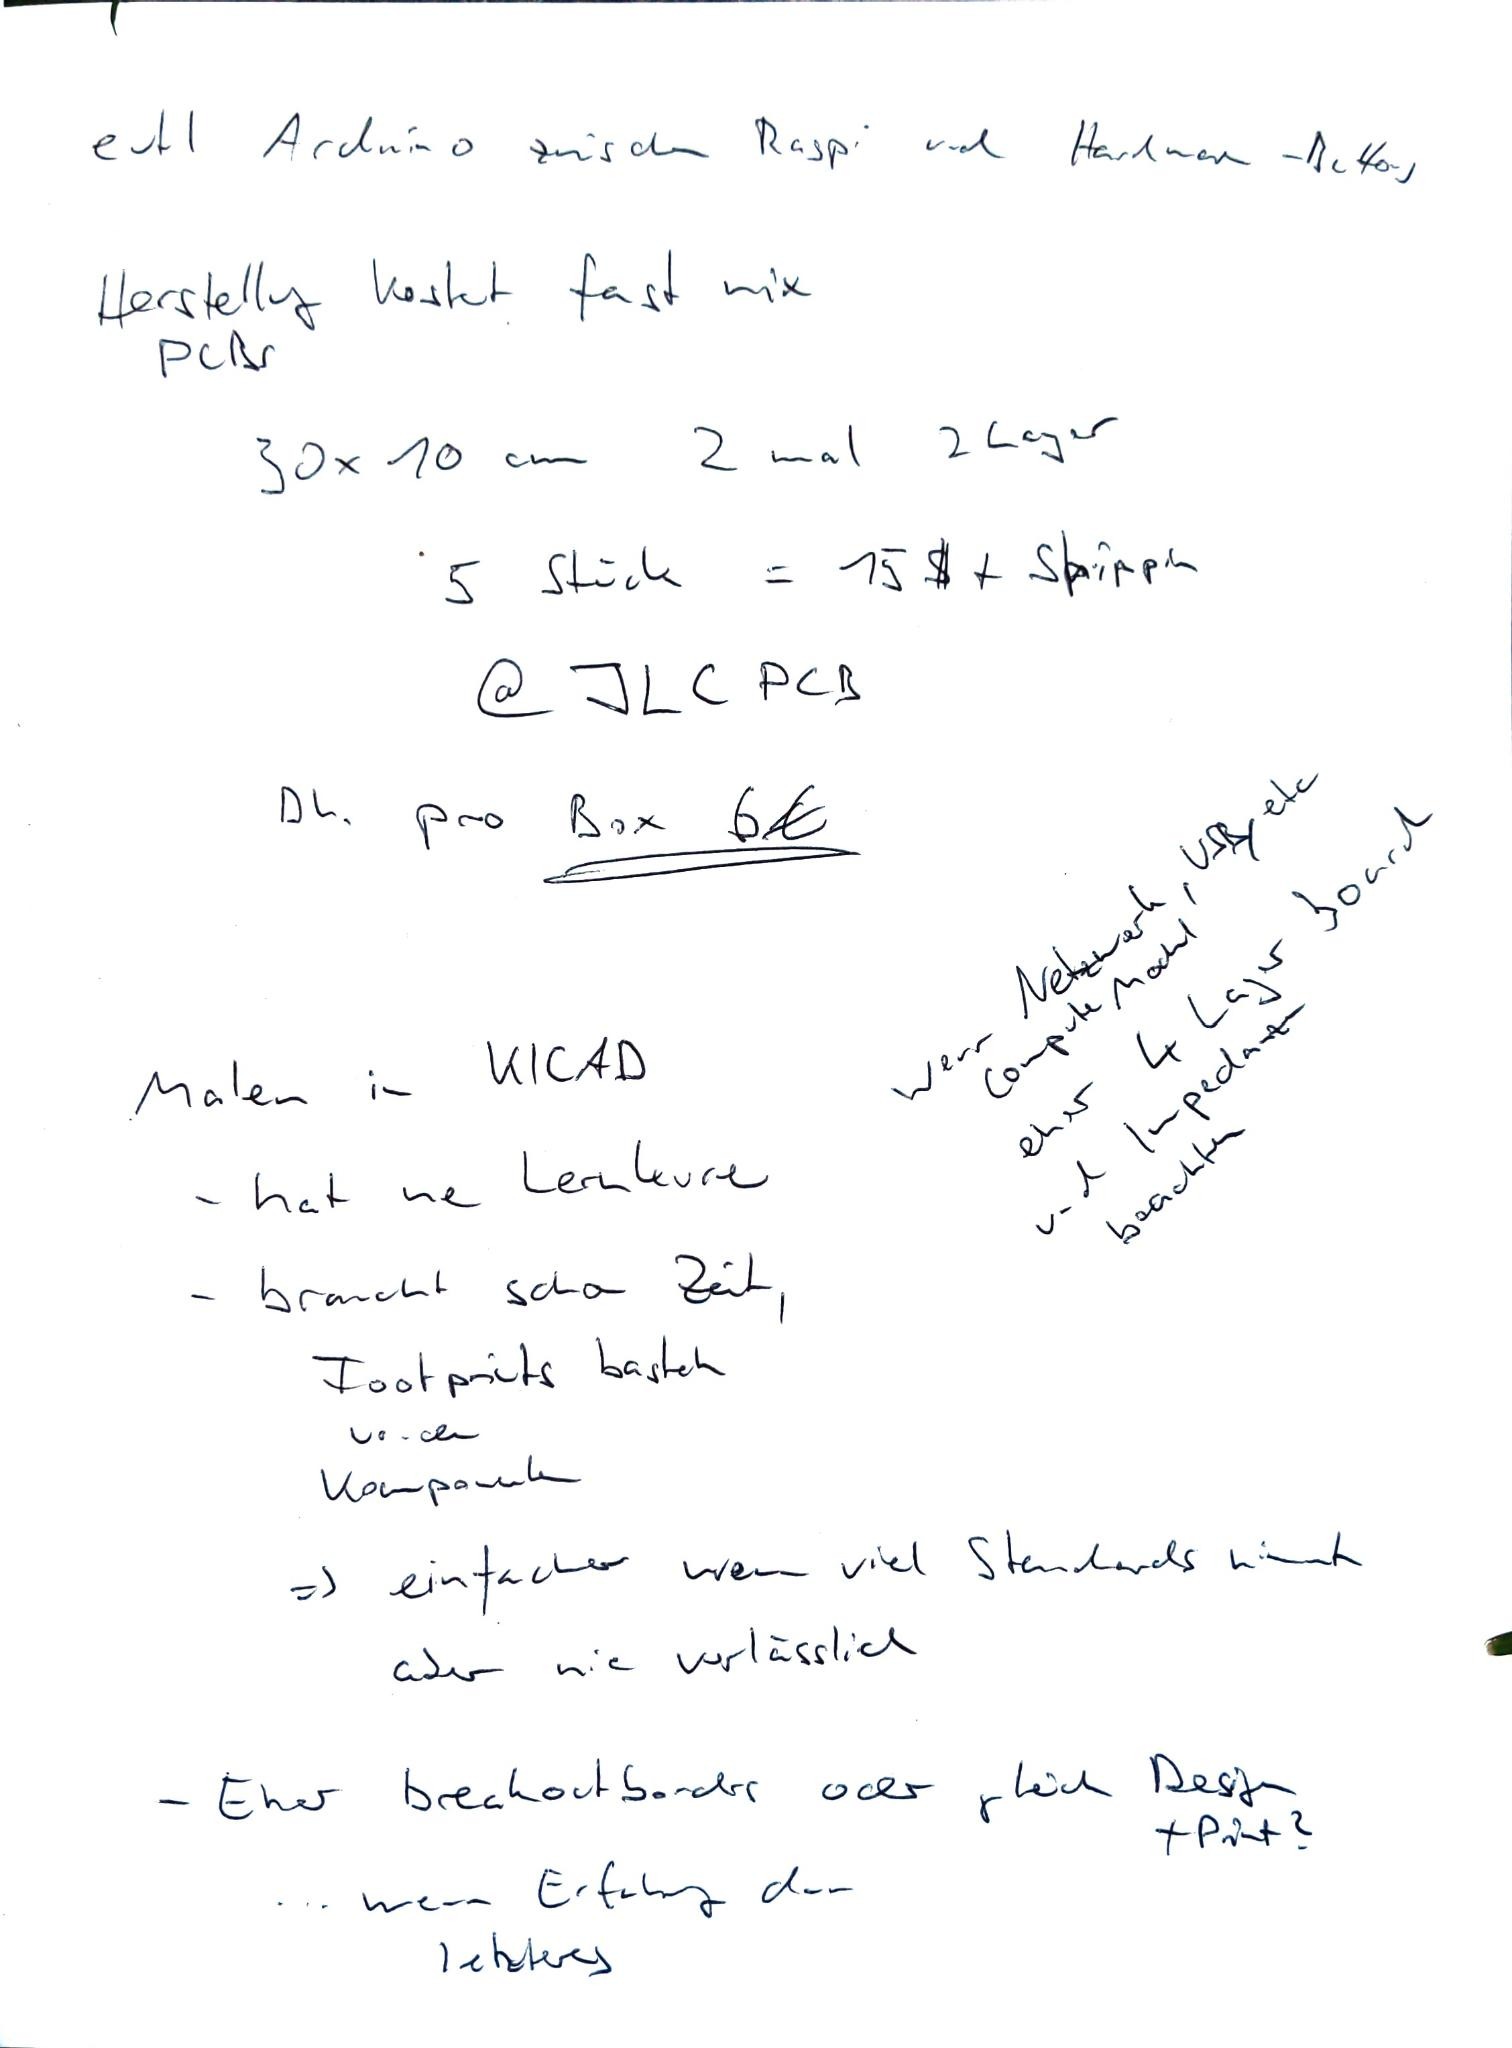 evtl Arduino zwischen Raspi und Hardware-Buttons
Herstellung kostet fast nix
PCBs
30x10 cm 2 mal 2 Layer
5 Stück = 15 $ + Shippin
@ JLC PCB
Dh. pro Box 6€
wenn Netzwerk, USB, etc
Compute Modul
eher 4 Layer board
und Impedanzen
beachten
Malen in KICAD
- hat ne Lernkurve
- braucht schon Zeit,
Footprints basteln
von den
Komponenten
=> einfacher wenn viel Standards nimmt
aber nie verlässlich
- Eher breakoutboards oder gleich Design
+ Print?
... wenn Erfahrung dann
letzteres